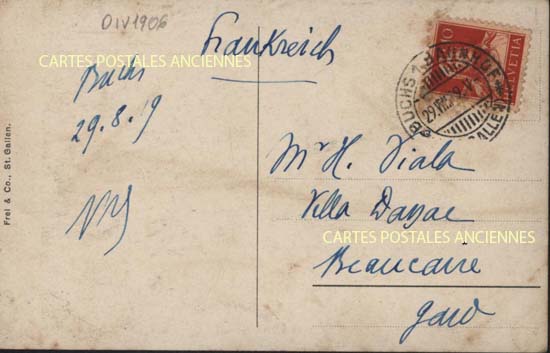 DIV1906
Frankreich
CARTES POSTALES ANCIENNES
Buchs
29.8.19
Frei & Co., St. Gallen.
HELVETIA
10
BUCHS 1 BAHNHOF
GALLEN
Mr H. Viala
Villa
CARTES POSTALES ANCIENNES
Beaucaire
Gard